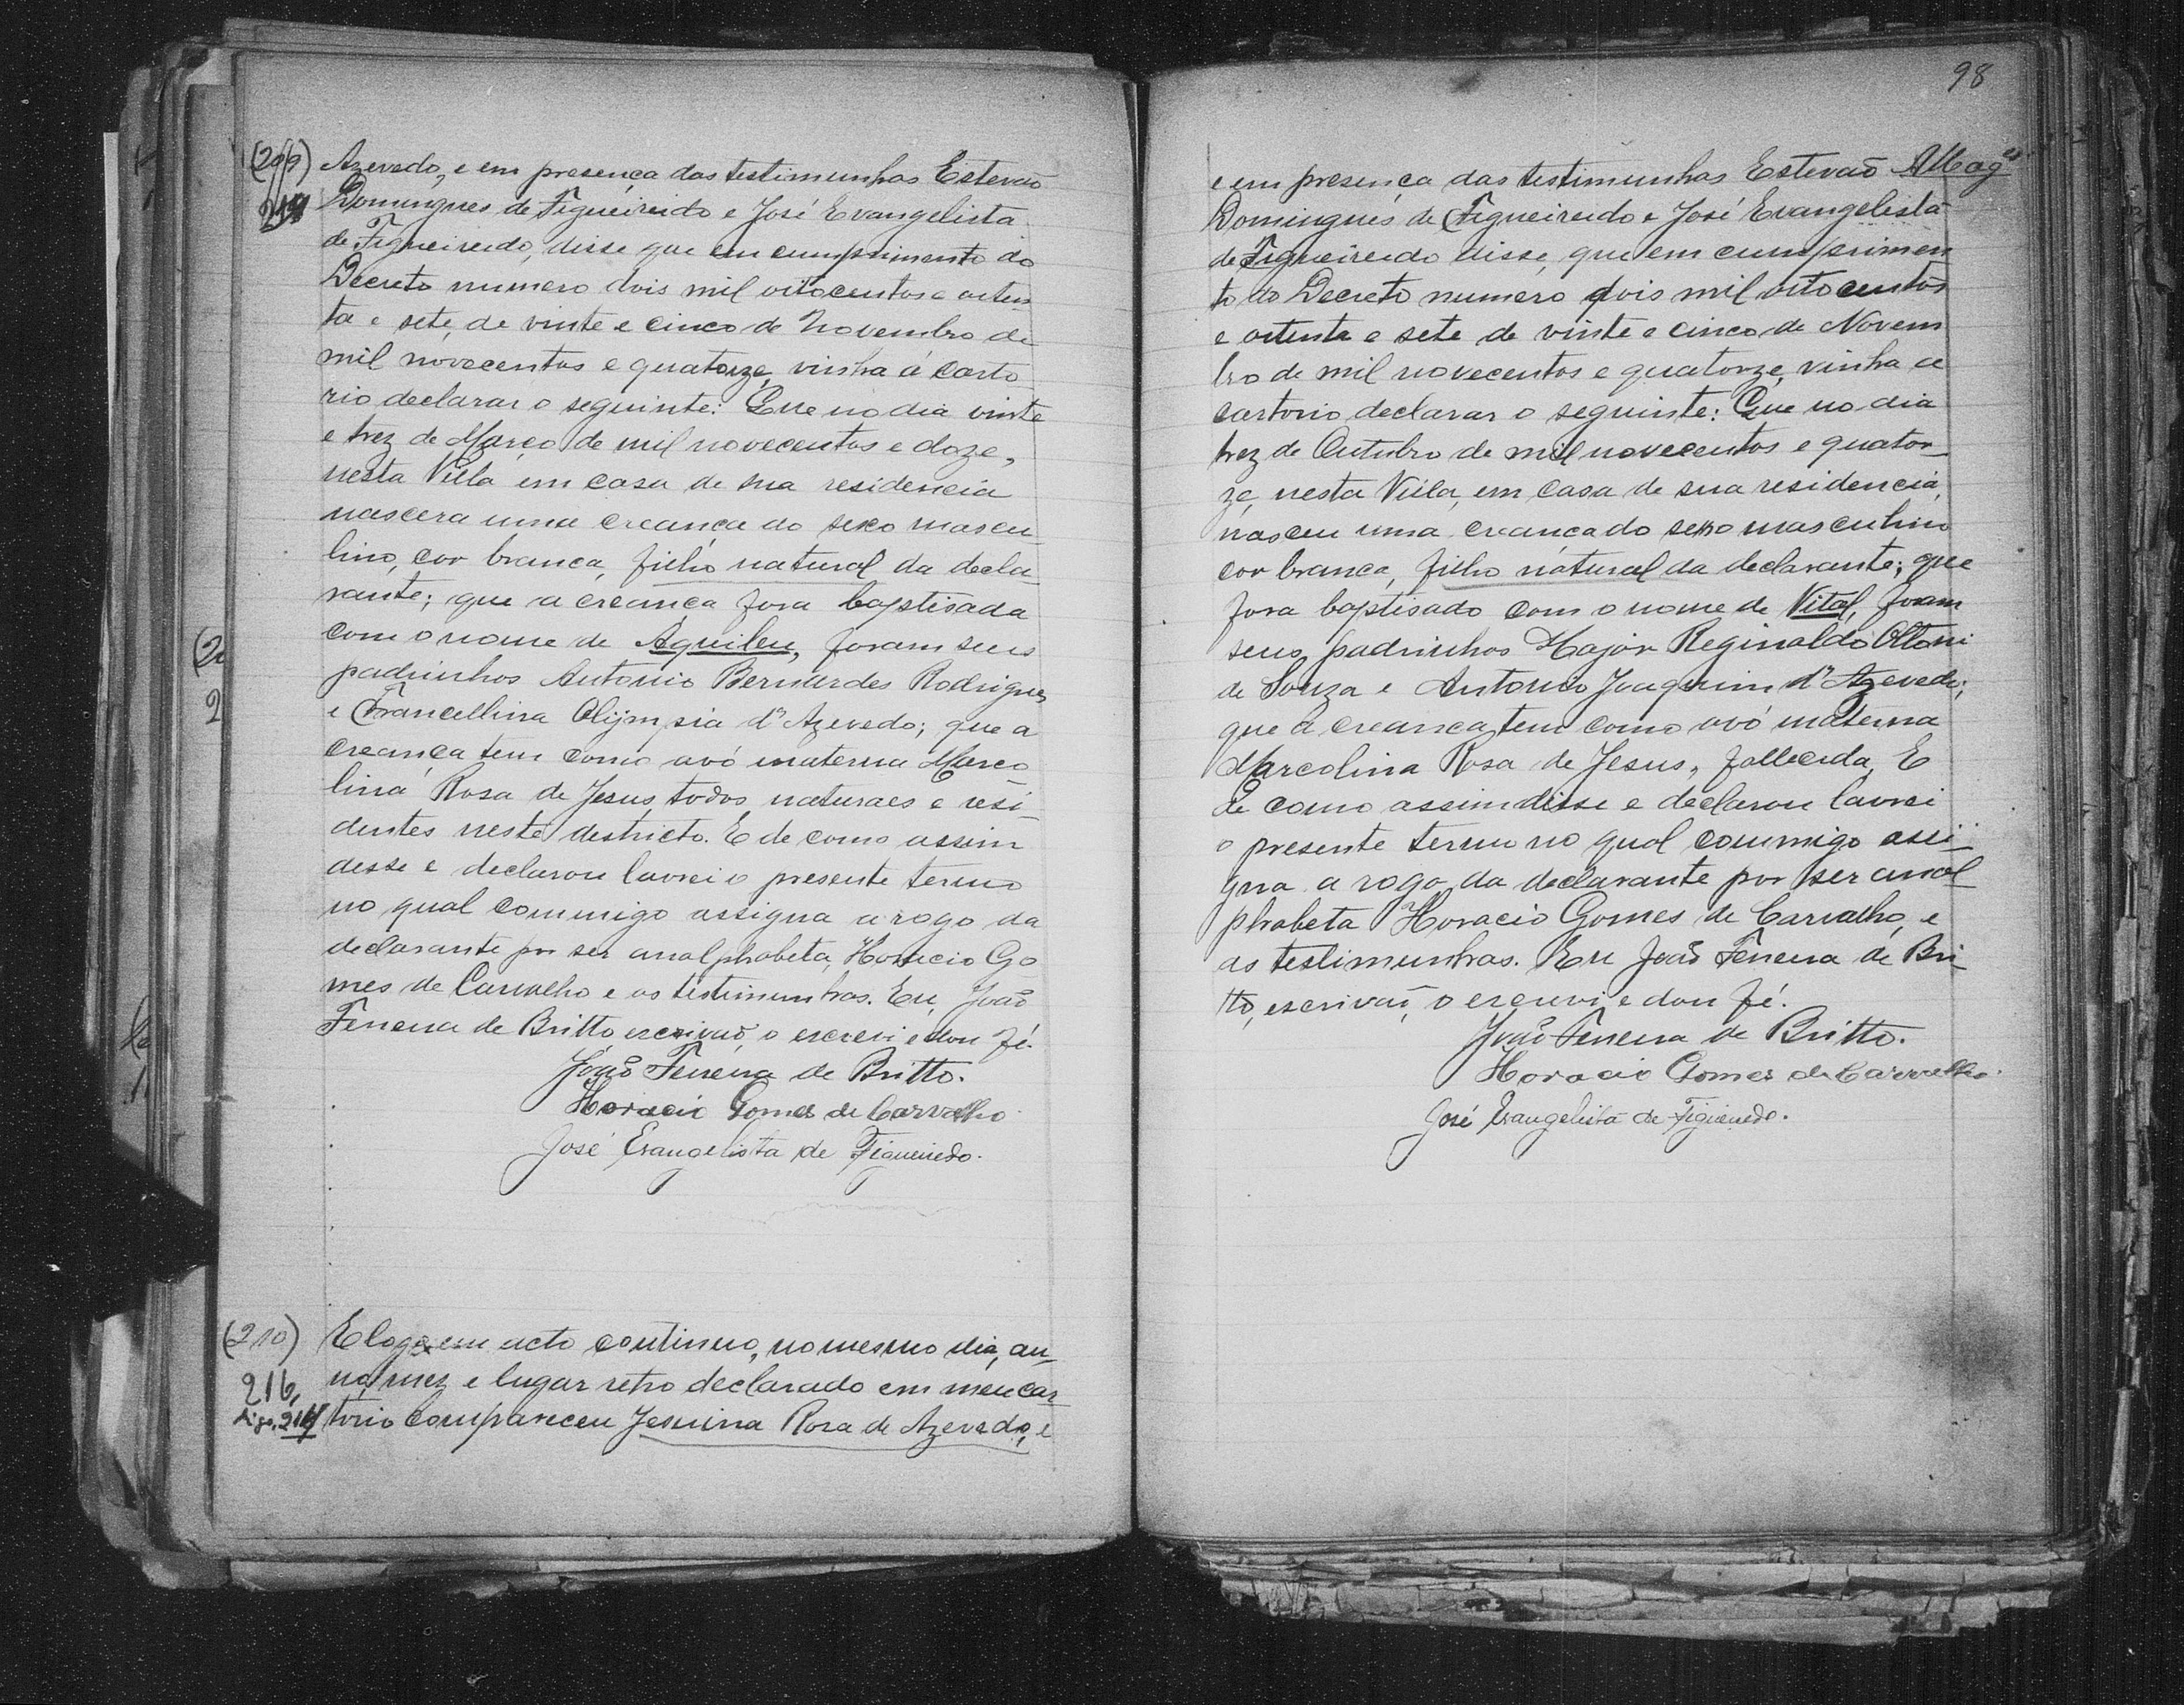 (209) Azevedo, e em presença das testimunhas Estevaõ
Domingues de Figueireido e José Evangelista
de Figueireido, disse que em cumprimento do
Decreto numero dois mil oitocentos e oiten
ta e sete, de vinte e cinco de Novembro de
mil novecentos e quatorze, vinha á Carto
rio declarar o seguinte: Que no dia vinte
e trez de Março de mil novecentos e doze,
nesta Villa em casa de sua residencia
nascera uma creança do sexo mascu
lino, cor branca, filho natural da decla
rante; que a creança fora baptisada
com o nome de Aquileu, foram seus
padrinhos Antonio Bernardes Rodrigues
e Francellina Olijmpia d'Azevedo; que a
creança tem como avó materna Marco
lina Rosa de Jesus, todos naturaes e resi-
dentes neste destricto. E de como assim
desse e declarou lavrei o presente termo
no qual commigo assigna a rogo da
declarante por ser analphabeta, Horacio Go
mes de Carvalho e as testimunhas. Eu, João
Ferreira de Britto, escrivaõ, o escrevi e dou fé.
João Ferreira de Britto.
Horacio Gomes de Carvalho
José Evangelista de Figueiredo.
(210) E logo em acto continuo, no mesmo dia, an-
no, mez e lugar retro declarado em meu car
216, torio compareceu Jesuina Rosa de Azevedo, e
98
e em presença das testimunhas Estevaõ
Domingues de Figueireido e José Evangelista
de Figueireido disse, que em cumprimen
to do Decreto numero dois mil oitocentos
e oitenta e sete de vinte e cinco de Novem
bro de mil novecentos e quatorze, vinha a
cartorio declarar o seguinte: Que no dia
trez de Outubro de mil novecentos e quator-
ze, nesta Villa, em casa de sua residencia,
nasceu uma creança do sexo masculino
cor branca, filho natural da declarante; que
fora baptisado com o nome de Vital, foram
seus padrinhos Major Reginaldo Ottoni
de Souza e Antonio Joaquim d'Azevedo;
que a creança tem como avó materna
Marcolina Rosa de Jesus, fallecida, E
de como assim disse e declarou lavrei
o presente termo no qual commigo assi-
gna a rogo da declarante por ser anal-
phabeta Horacio Gomes de Carvalho, e
as testimunhas. Eu João Ferreira de Bri-
tto, escrivaõ, o escrevi e dou fé.
João Ferreira de Britto.
Horacio Gomes de Carvalho.
José Evangelista de Figueiredo.